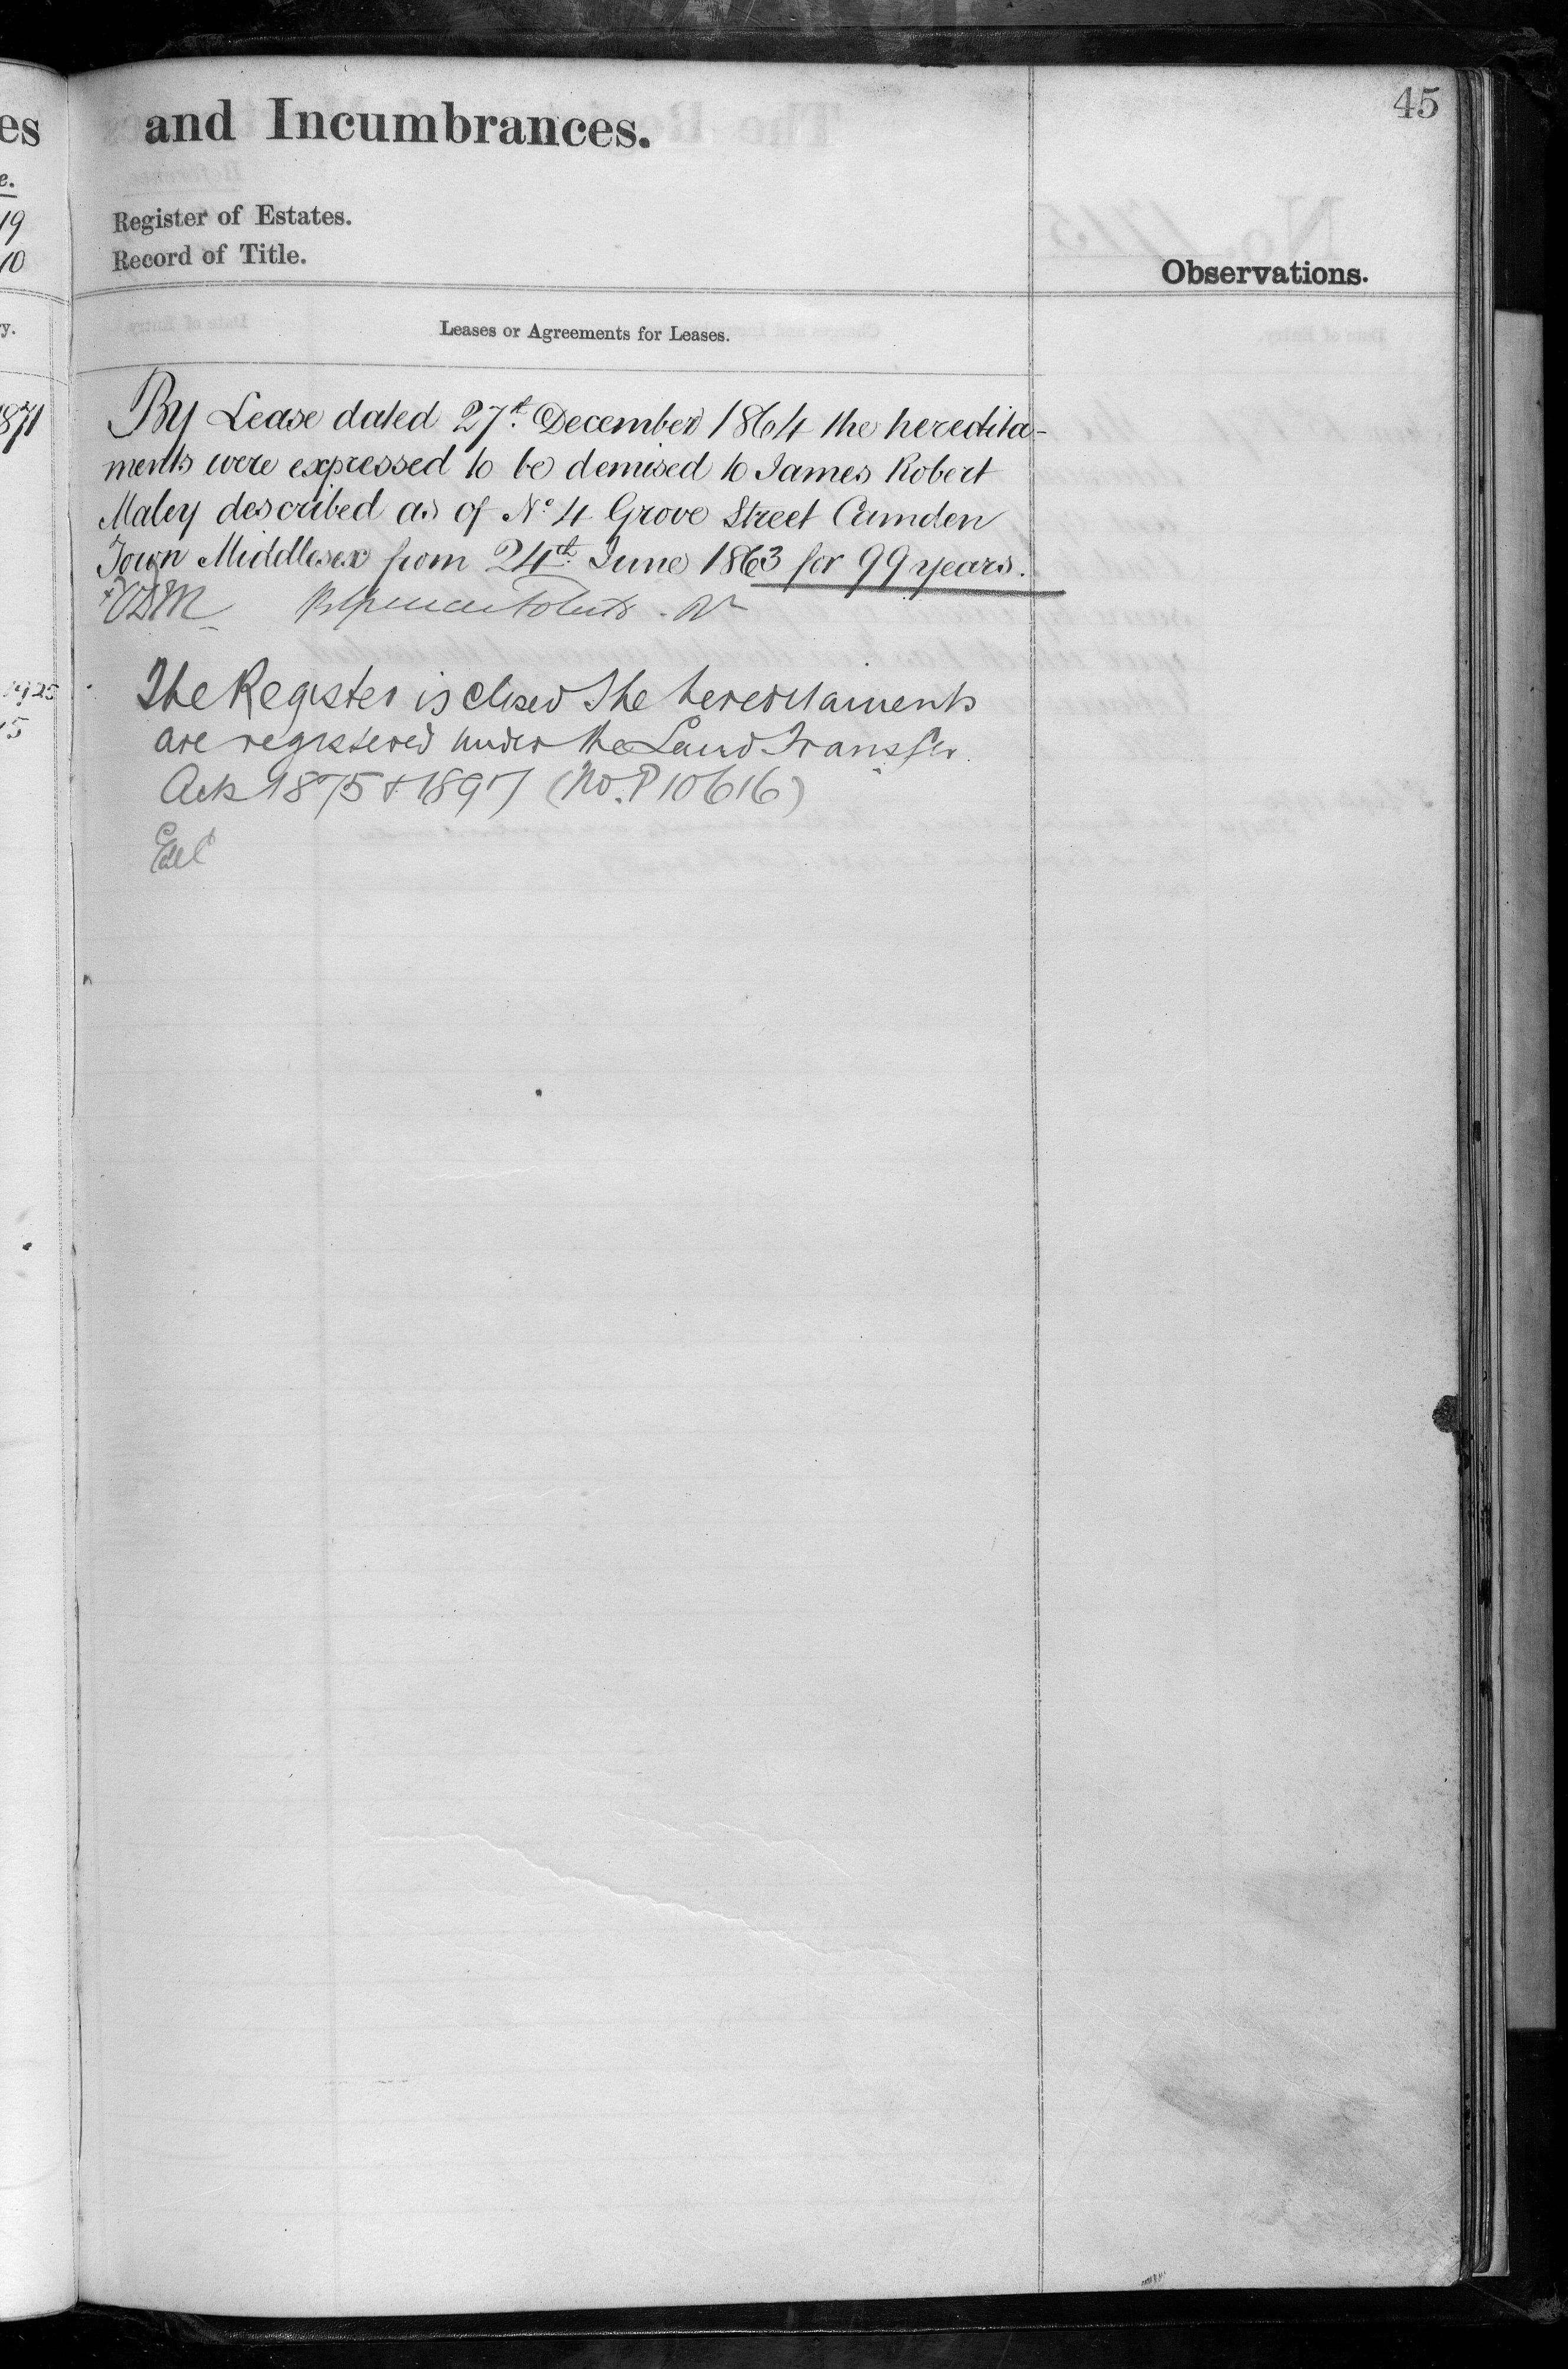 45
es
and Incumbrances.
e.
19
10
Register of Estates.
Record of Title.
Observations.
y.
Leases or Agreements for Leases.
1871
By Lease dated 27th December 1864 the heredita-
ments were expressed to be demised to James Robert
Maley described as of No 4 Grove Street Camden
Town Middlesex from 24th June 1863 for 99 years.
1925
15
The Register is closed The hereditaments
are registered under the Land Transfer
Acts 1875 & 1897 (No. P 10616)